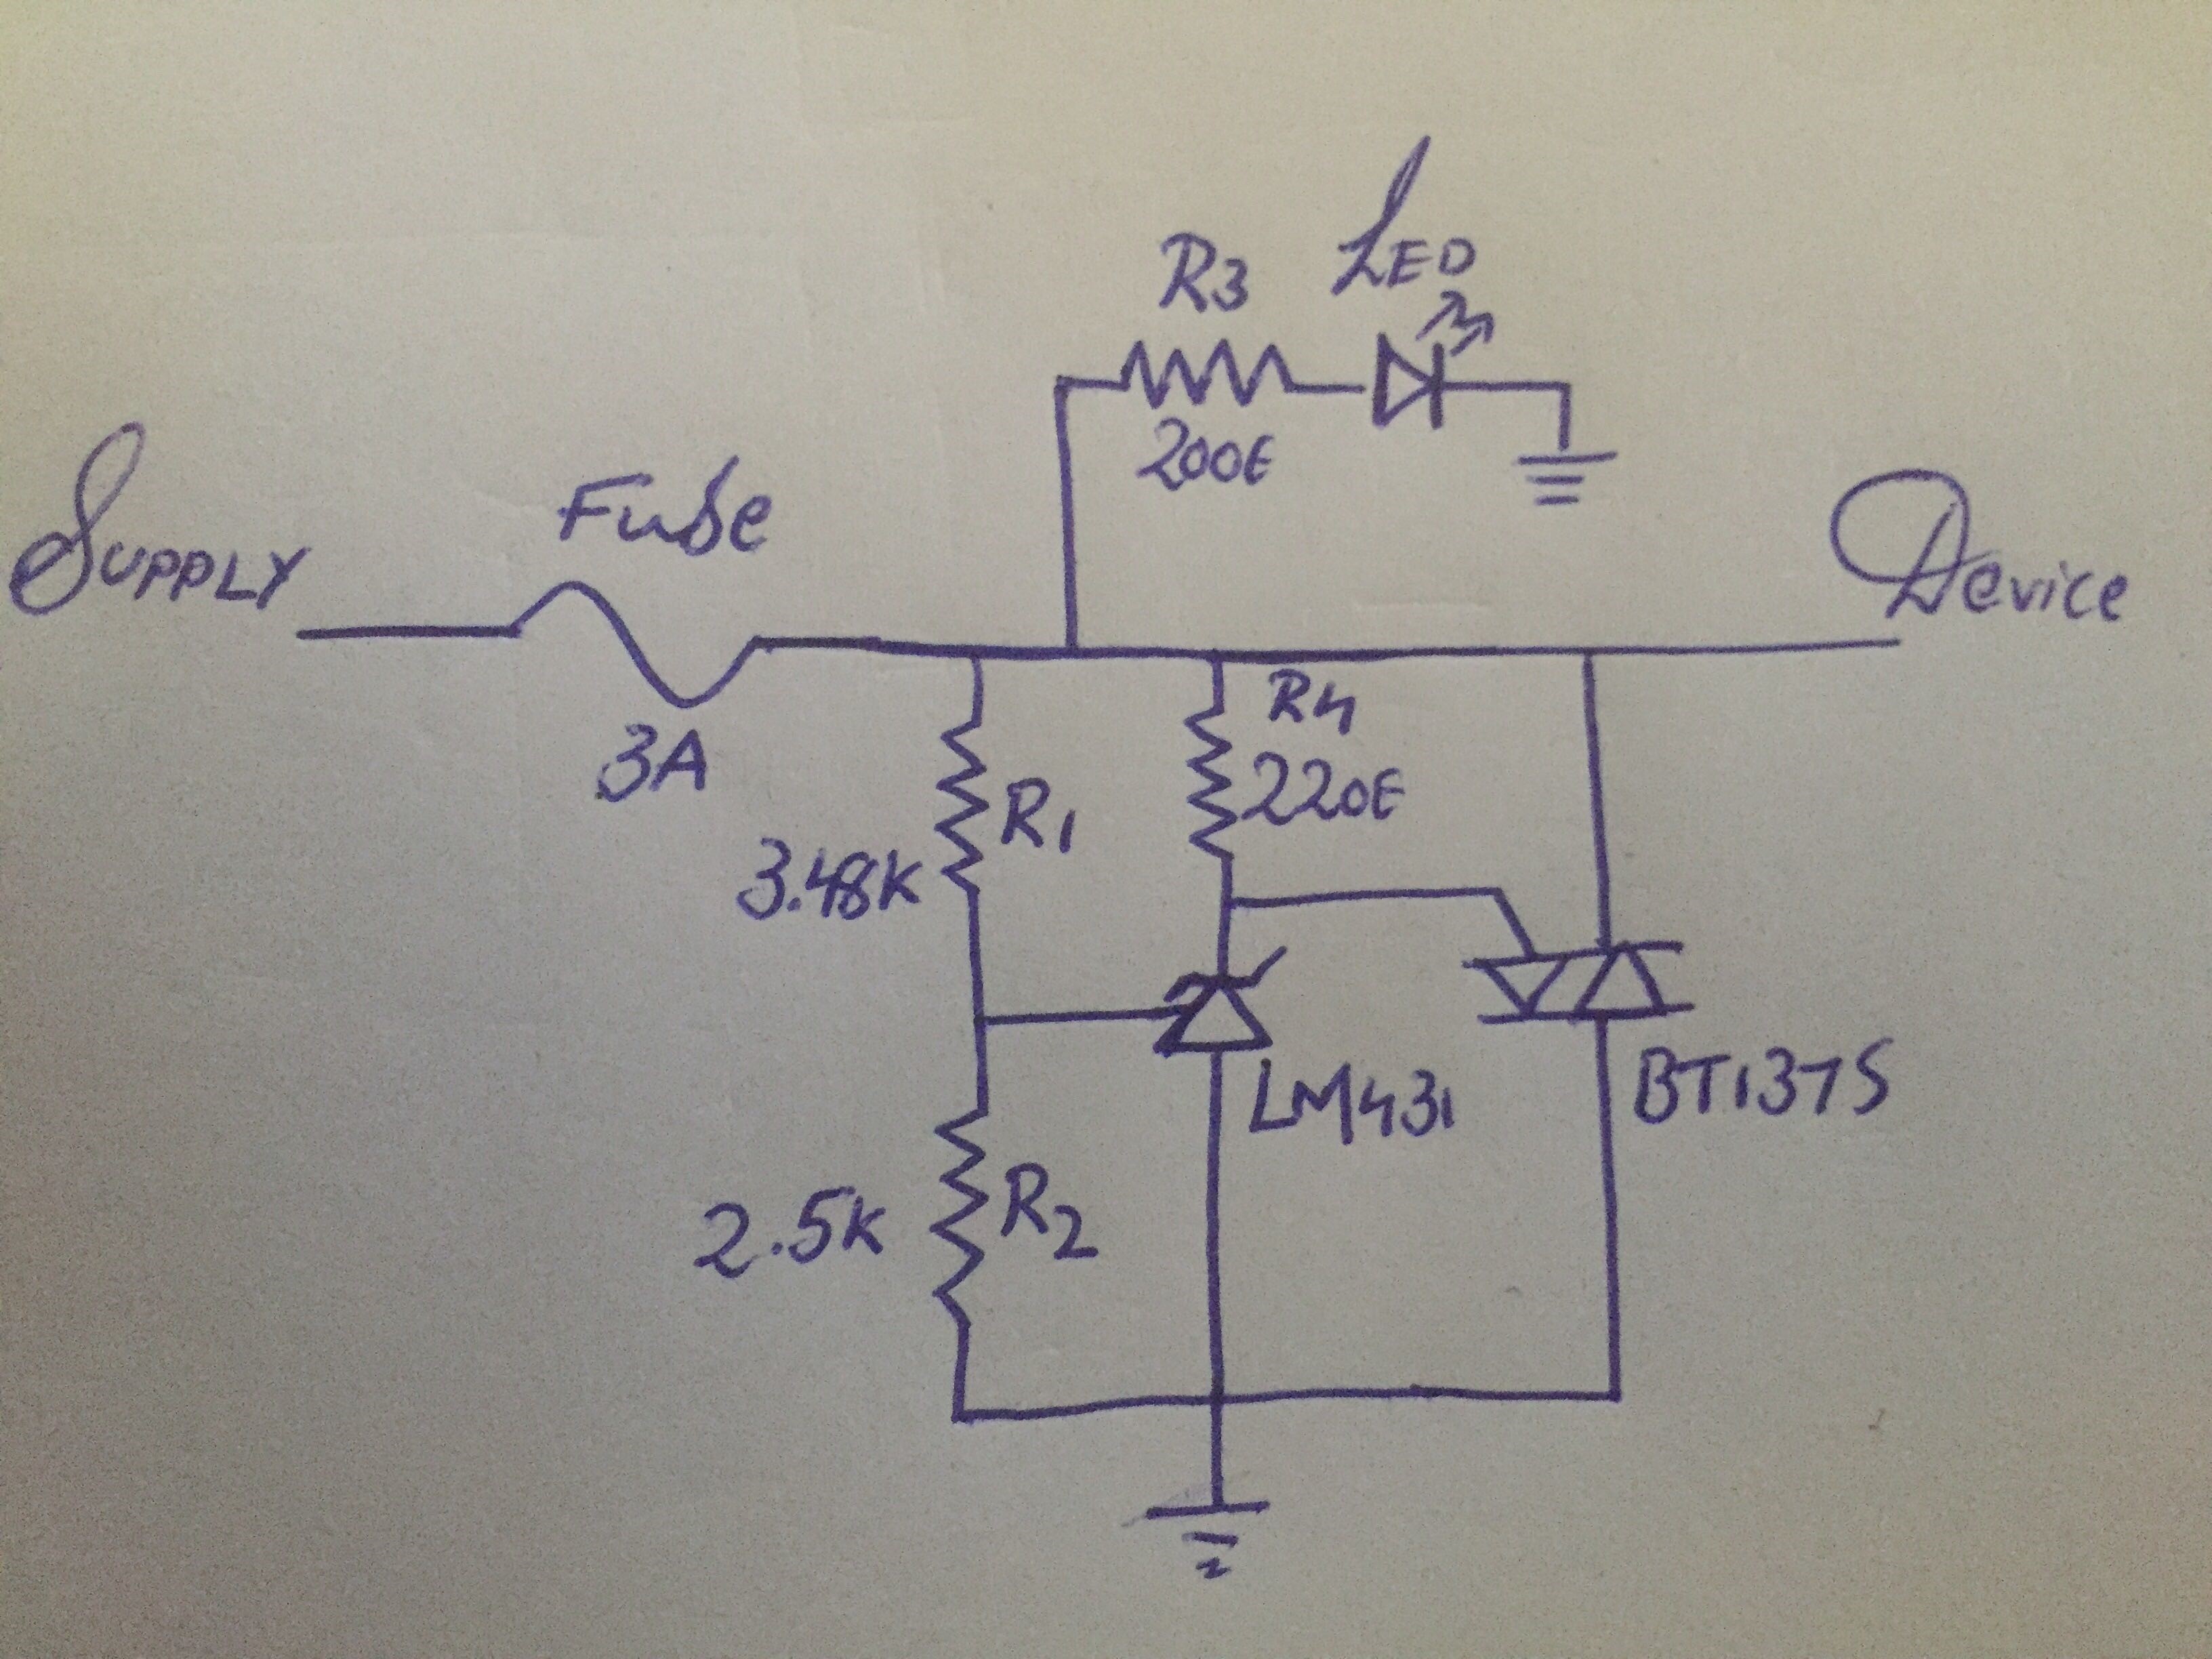 LED
R3
200E
SUPPLY
Fuse
3A
Device
R4
220E
R1
3.48K
LM431
BT137S
2.5K
R2